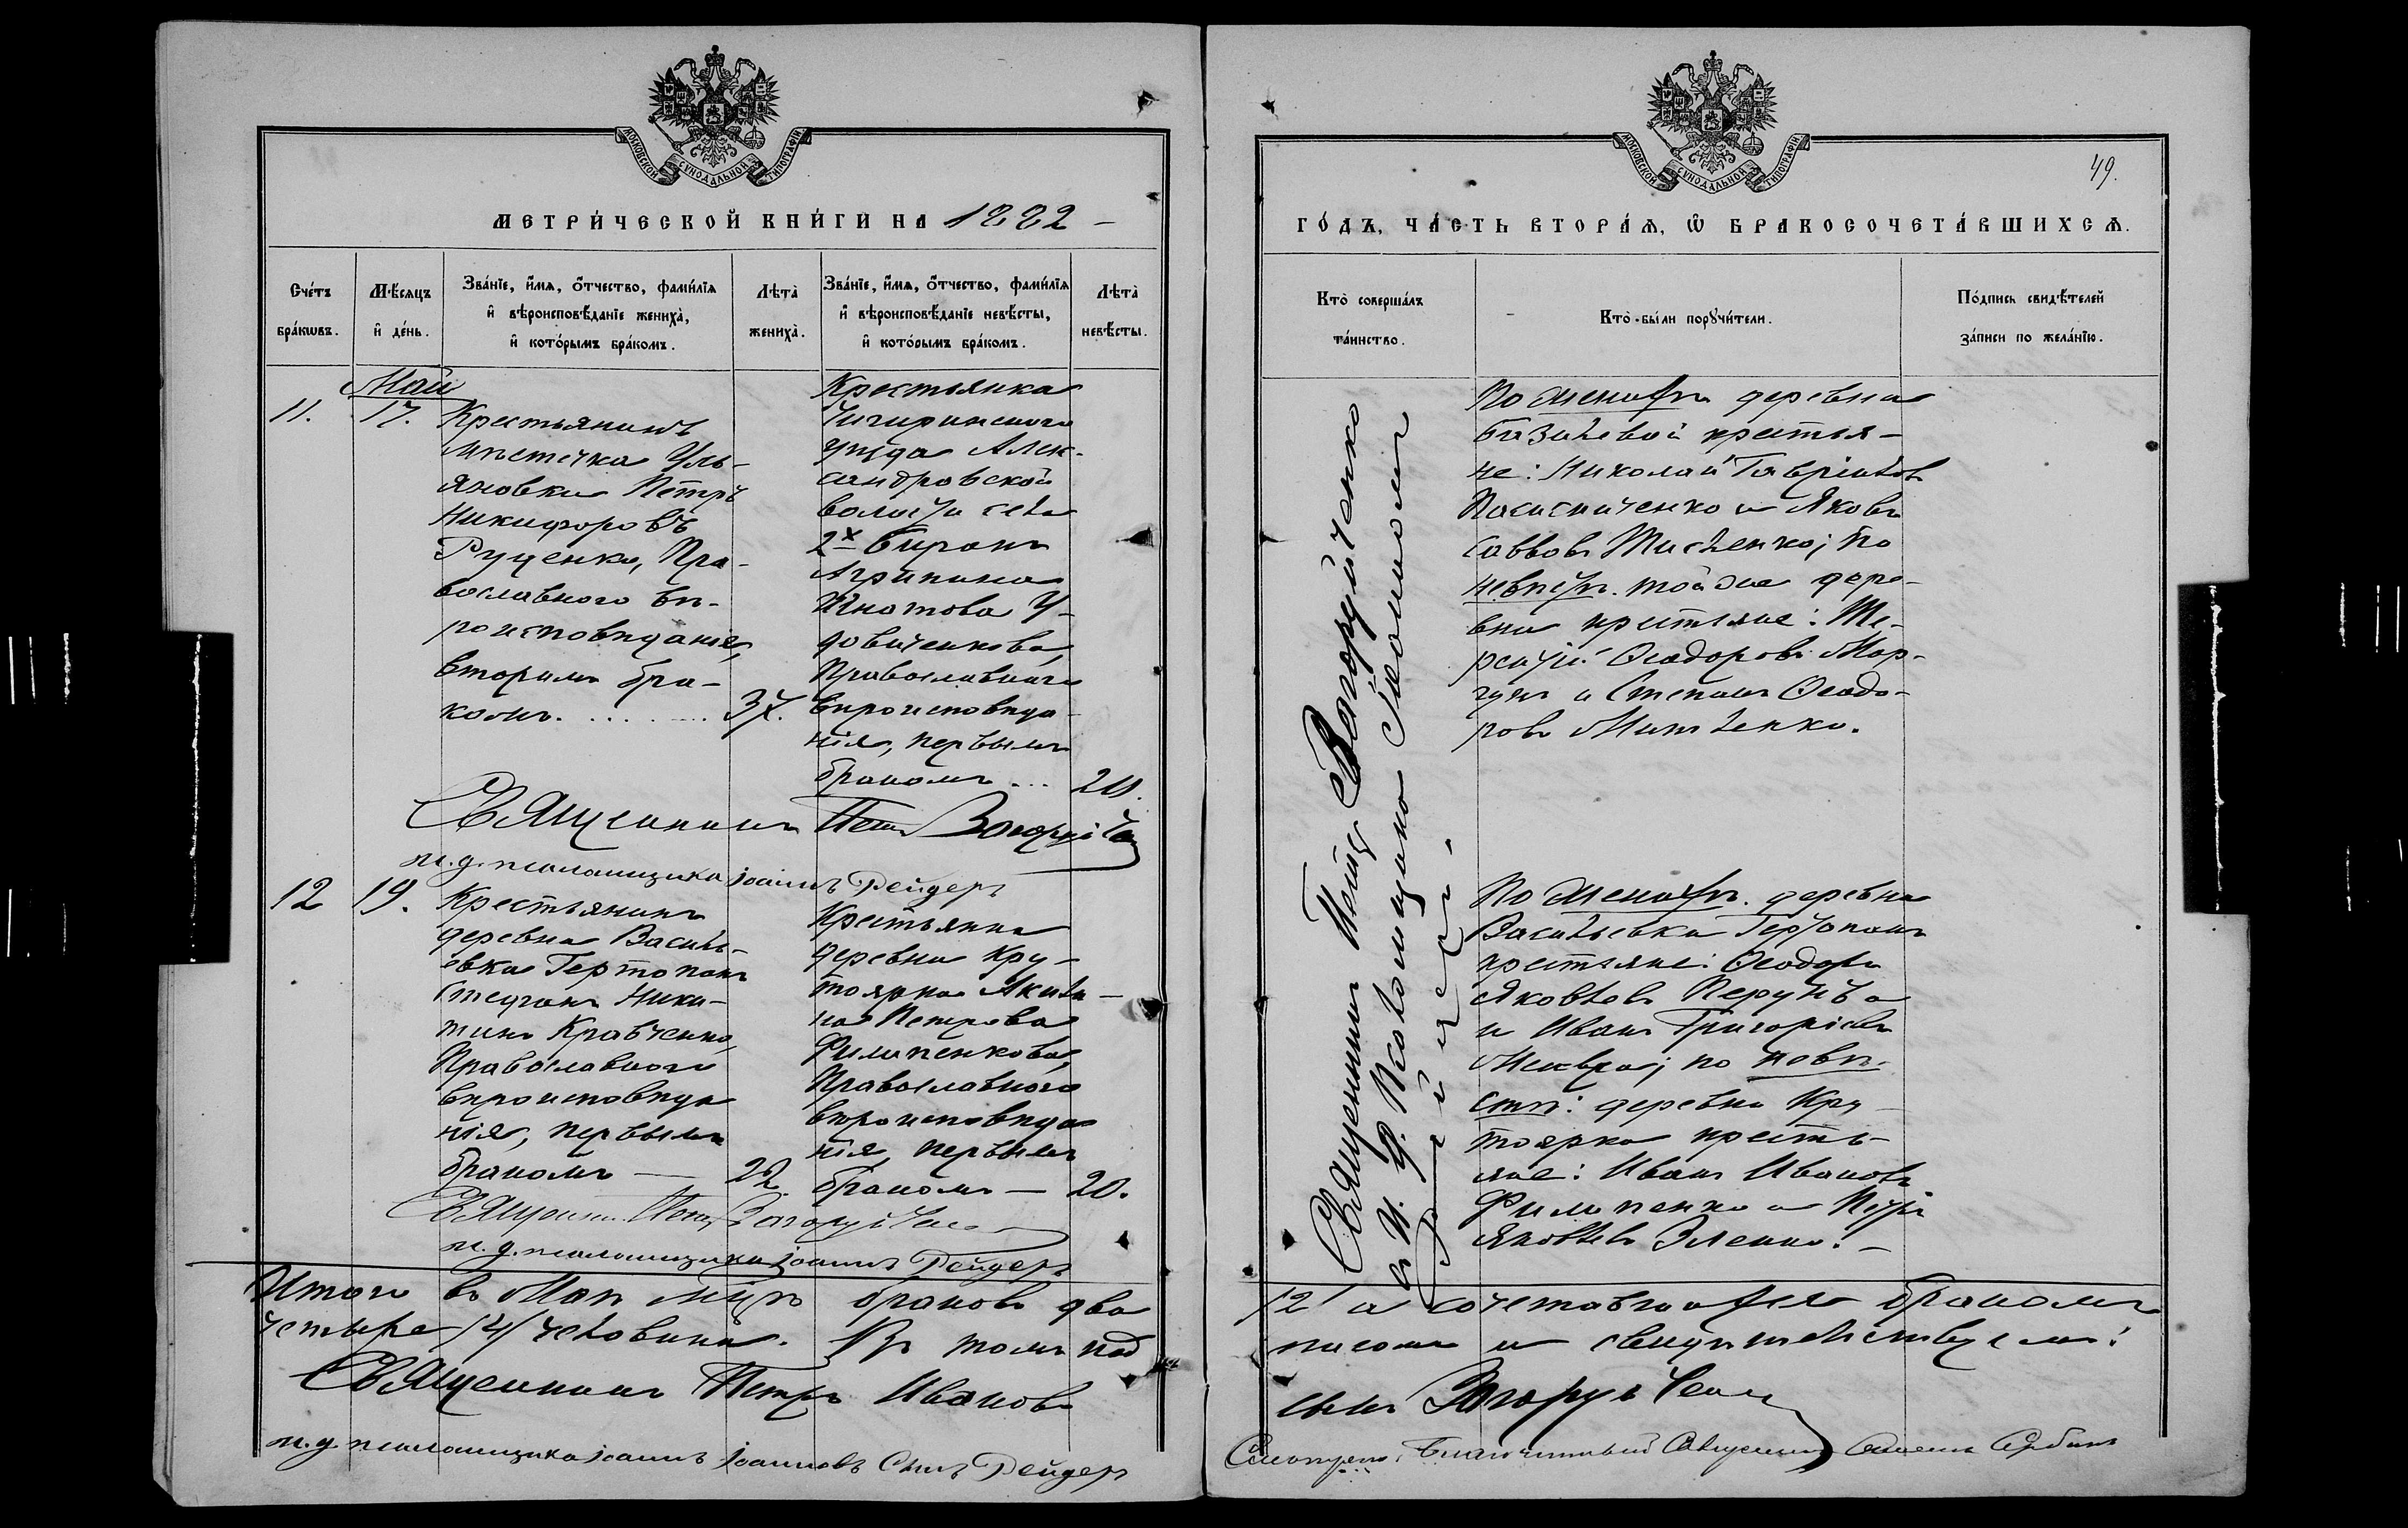 МОСКОВСКОЙ СѴНОДАЛЬНОЙ ТИПОГРАФІИ
МЕТРИ́ЧЕСКОЙ КНИ́ГИ НА 1882 -
Сче́тъ бра́кѡвъ.
Мѣ́сяцъ и де́нь.
Зва́нїе, и́мѧ, о́тчество, фами́лїѧ
и вѣроисповѣ́данїе жениха̀,
и кото́рымъ бра́комъ.
Лѣта̀
жениха̀.
Зва́нїе, и́мѧ, о́тчество, фами́лїѧ
и вѣроисповѣ́данїе невѣ́сты,
и кото́рымъ бра́комъ.
Лѣта̀
невѣ́сты.
Май
11. 17.
Крестьянинъ
мѣстечка Уль-
яновки Петръ
Никифоровъ
Руценко, Пра-
вославнаго вѣ-
роисповѣданія,
вторымъ бра-
комъ. . . . . . . . . 37.
Крестьянка
Чигиринского
уѣзда Алек-
сандровской
волости села
2х
Агрипина
Игнатова У-
довиченкова,
Православнаго
вѣроисповѣда-
нія, первымъ
бракомъ ... 20.
Священникъ Петръ Вогоруйченко
и. д. псаломщика Іоаннъ Рейдеръ
12 19.
Крестьянинъ
деревни Василь-
евки Тертопанъ
Стефанъ Ники-
тинъ Кравченко,
Православнаго
вѣроисповѣда
нія, первымъ
бракомъ — 22.
Крестьянка
деревни Кру-
тоярка Акили-
на Петрова
Филипенкова,
Православнаго
вѣроисповѣда
нія первымъ
бракомъ — 20.
Священникъ Петръ Вогоруйченко
и. д. псаломщика Іоаннъ Рейдеръ
Итого въ Маѣ мѣцѣ браковъ два
четыре /4/ человѣка. Къ томъ под
Священникъ Петръ Ивановъ
и. д. псаломщика Іоаннъ Іоанновъ Сынъ Рейдеръ
МОСКОВСКОЙ СѴНОДАЛЬНОЙ ТИПОГРАФІИ
49.
ГО́ДЪ, ЧА́СТЬ ВТОРА́Ѧ, Ѡ БРАКОСОЧЕТА́ВШИХСѦ.
Кто̀ соверша́лъ
та́инство.
Кто̀ были порꙋчи́тели.
По́дпись свидѣ́телей
за́писи по жела́нїю.
Священникъ Петръ Вогоруйченко
съ и. д. Псаломщика Іоанномъ
Рейдеръ.
По женихѣ деревни
Базилевой крестья-
не: Николай Гавріиловъ
и Яковъ
Саввовъ Тисленко; по
невѣстѣ. той же дере-
вни крестьяне: Те-
рентій Ѳеодоровъ Мор-
гунъ и Степанъ Ѳеодо-
ровъ Митленко.
По женихѣ. деревни
Васильевки Тертопанъ
крестьяне: Ѳеодоръ
Яковлевъ Перунъ
и Иванъ Григоріевъ
по невѣ-
стѣ: деревни Кру-
тоярка кресть-
яне: Иванъ Ивановъ
Филипенко и Петръ
Яковлевъ Зленко. —
/2/ а сочетавшихся бракомъ
писами и свидѣтельствуемъ:
сынъ Вогоруйченко
Смотрѣлъ: Благочинный Священникъ